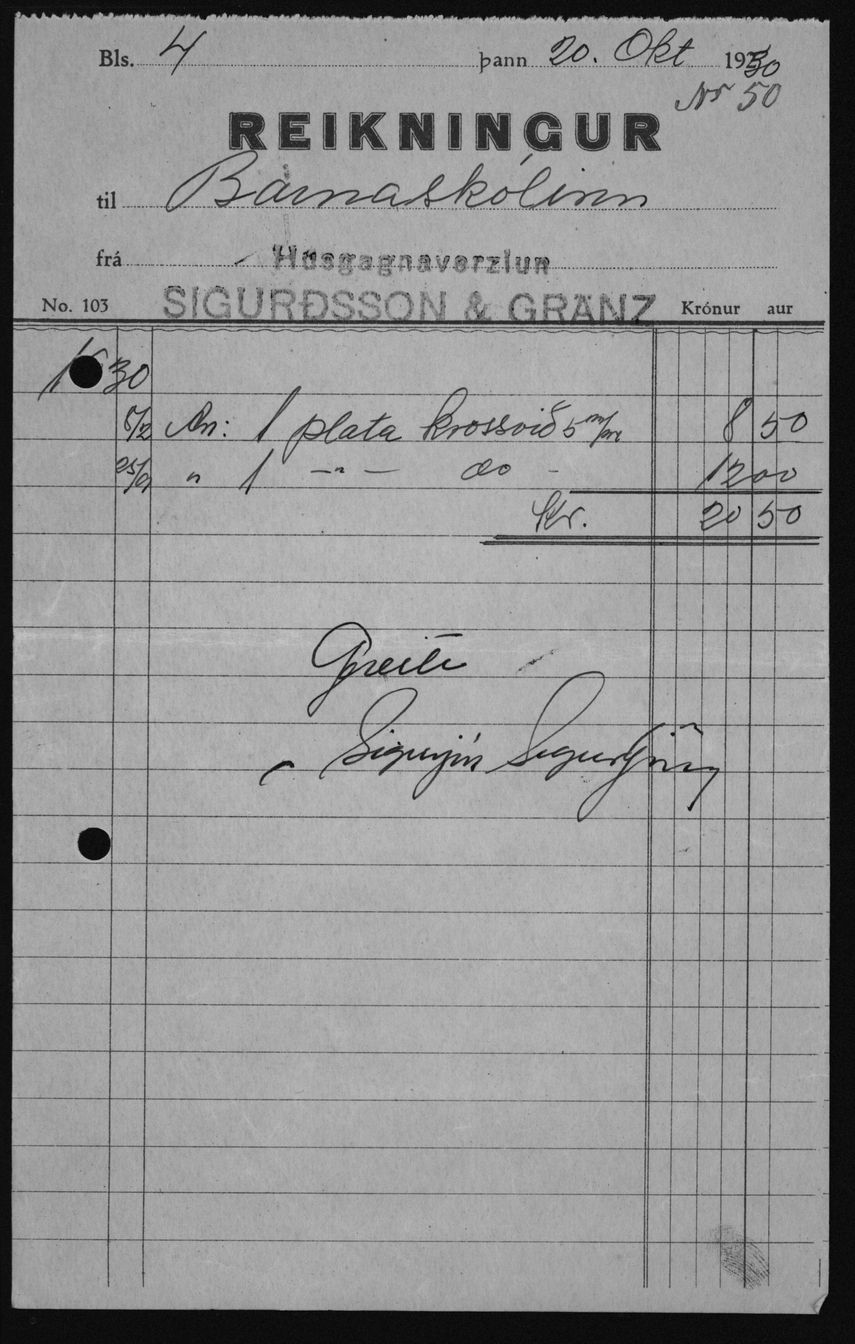 Bls. 4 þann 20. Okt 1930
Nr 50
REIKNINGUR
til Barnaskólinn
frá Húsgagnaverzlun
No. 103 SIGURÐSSON & GRÄNZ Krónur aur
30
5/2 An: 1 plata krossvið 5 m/m 8 50
25/9 " 1 — " — do - 12 00
Kr. 20 50
Greitt